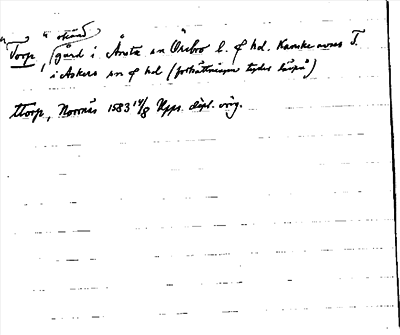 "Torp, " okänd
(gård i Ånsta sn Örebro l. o hd. Kanske avses T.
i Askers sn o hd (fortsättningen tyder härpå)
ttorp, Norrnäs 1583 14/8 Upps. dipl. orig.